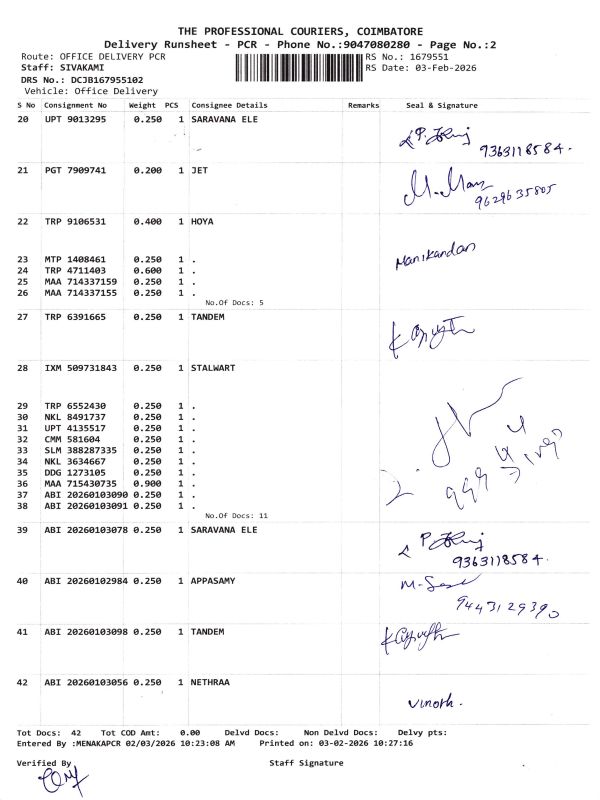 THE PROFESSIONAL COURIERS, COIMBATORE
Delivery Runsheet - PCR - Phone No.:9047080280 - Page No.:2
Route: OFFICE DELIVERY PCR RS No.: 1679551
Staff: SIVAKAMI RS Date: 03-Feb-2026
DRS No.: DCJB167955102
Vehicle: Office Delivery
S No Consignment No Weight PCS Consignee Details Remarks Seal & Signature
20 UPT 9013295 0.250 1 SARAVANA ELE
9363118584.
21 PGT 7909741 0.200 1 JET
9629635805
22 TRP 9106531 0.400 1 HOYA
Manikandan
23 MTP 1408461 0.250 1 .
24 TRP 4711403 0.600 1 .
25 MAA 714337159 0.250 1 .
26 MAA 714337155 0.250 1 .
No.Of Docs: 5
27 TRP 6391665 0.250 1 TANDEM
28 IXM 509731843 0.250 1 STALWART
29 TRP 6552430 0.250 1 .
30 NKL 8491737 0.250 1 .
31 UPT 4135517 0.250 1 .
32 CMM 581604 0.250 1 .
33 SLM 388287335 0.250 1 .
34 NKL 3634667 0.250 1 .
35 DDG 1273105 0.250 1 .
36 MAA 715430735 0.900 1 .
37 ABI 20260103090 0.250 1 .
38 ABI 20260103091 0.250 1 .
No.Of Docs: 11
39 ABI 20260103078 0.250 1 SARAVANA ELE
9363118584.
40 ABI 20260102984 0.250 1 APPASAMY
9443129390
41 ABI 20260103098 0.250 1 TANDEM
42 ABI 20260103056 0.250 1 NETHRAA
Vinoth.
Tot Docs: 42 Tot COD Amt: 0.00 Delvd Docs: Non Delvd Docs: Delvy pts:
Entered By :MENAKAPCR 02/03/2026 10:23:08 AM Printed on: 03-02-2026 10:27:16
Verified By Staff Signature